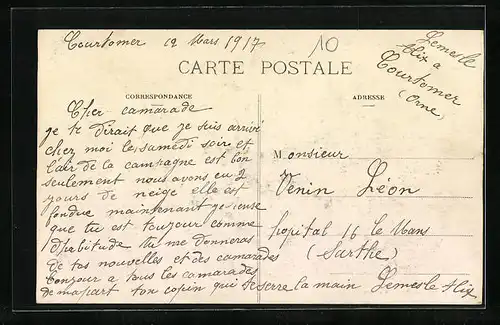 Courtomer 12 Mars 1917
10
Lemesle
Alix a
Courtomer
(Orne)
CARTE POSTALE
CORRESPONDANCE
ADRESSE
Cher camarade
je te dirait que je suis arrivé
chez moi le samedi soir et
l'air de la campagne est bon
seulement nous avons eu 2
jours de neige elle est
fondue maintenant je pense
que tu est toujour comme
d'habitude tu me donneras
de tas nouvelles et des camarades
bonjour a tous les camarades
de ma part ton copin qui te serre la main Lemesle Alix
Monsieur
Venin Léon
hopital 16 le Mans
(Sarthe)